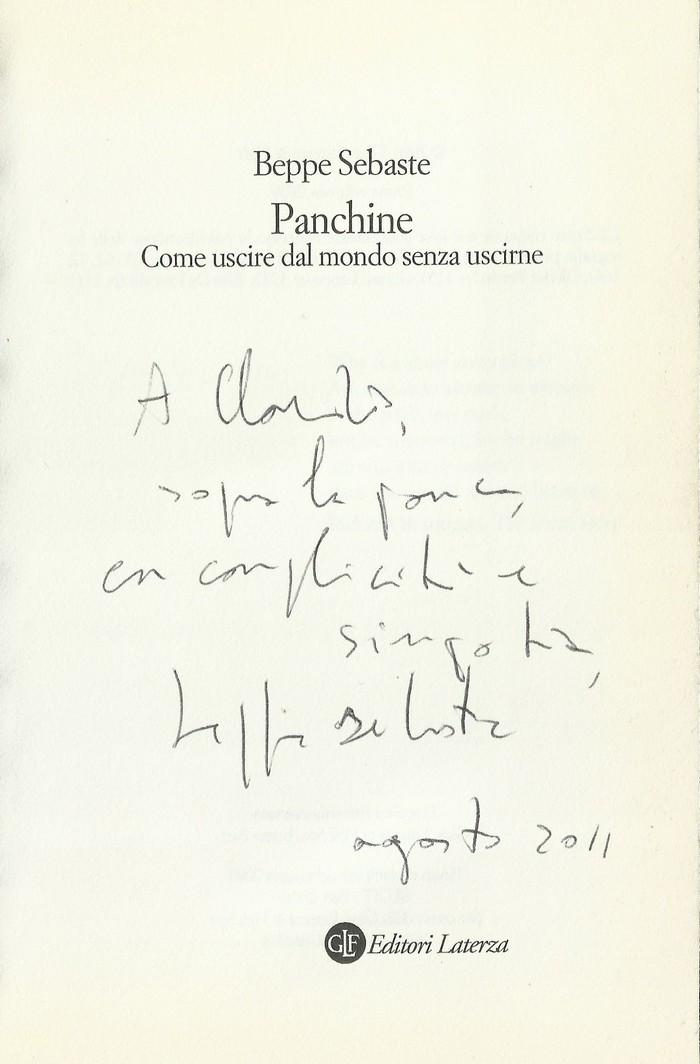 Beppe Sebaste
Panchine
Come uscire dal mondo senza uscirne
A
sopra la
con complicità e
Beppe Sebaste
agosto 2011
GLF Editori Laterza